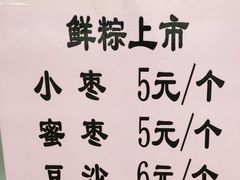 鲜粽上市
小枣 5元/个
蜜枣 5元/个
豆沙 6元/个